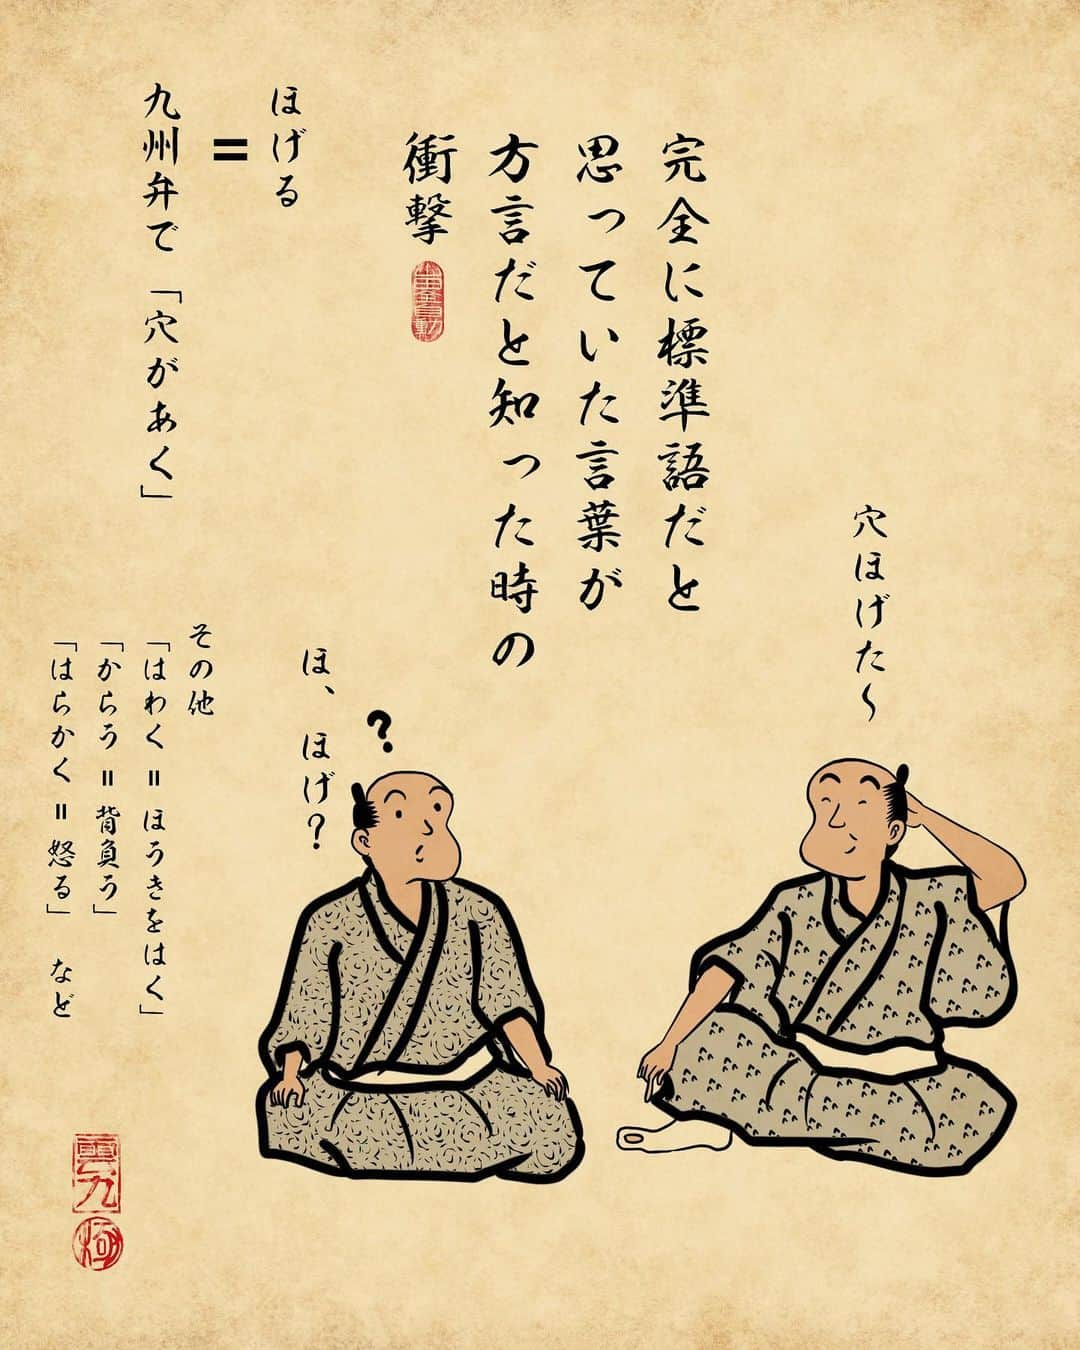 完全に標準語だと
思っていた言葉が
方言だと知った時の
衝撃
穴ほげた〜
ほ、ほげ?
?
ほげる
=
九州弁で「穴があく」
その他
「はわく=ほうきをはく」
「からう=背負う」
「はらかく=怒る」など